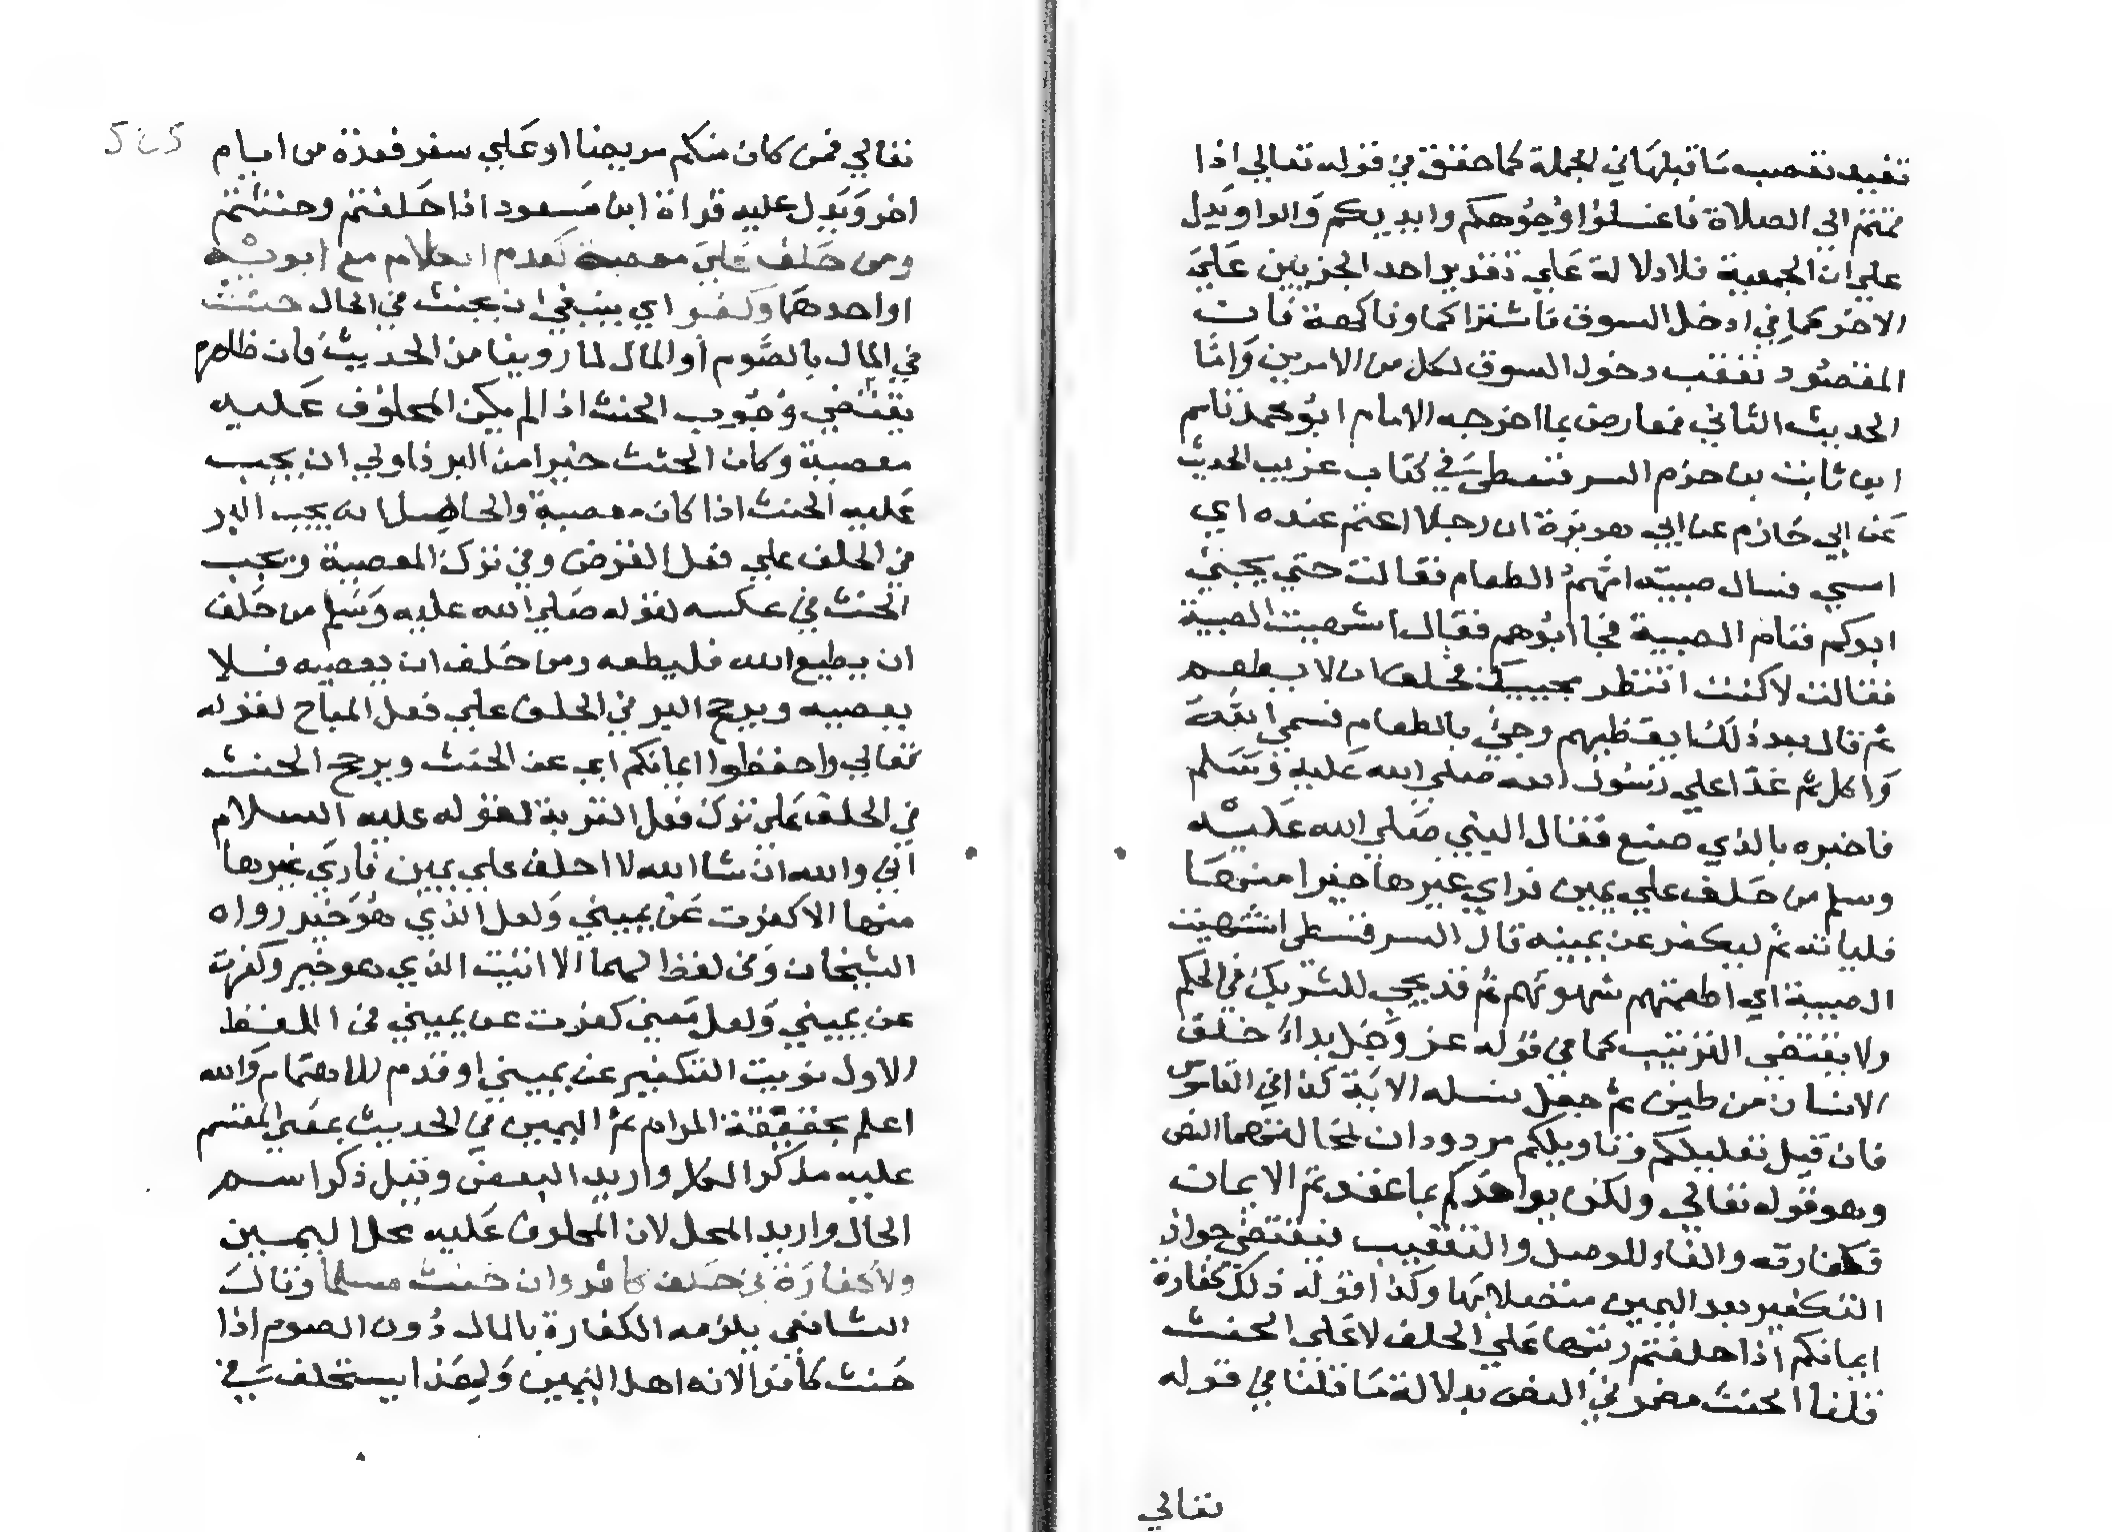 تفيد تعقيب ما قبلها في الجملة كما حقق في قوله تعالى اذا
قمتم الى الصلاة فاغسلوا وجوهكم وايديكم والواو يدل
على ان الجمعية فلا دلالة على تقدير احد الجزيين على
الاخر كما في ادخل السوق فاشتر لحما وفاكهة فان
المقصود تعقب دخول السوق لكل من الامرين واما
الحديث الثاني فمعارض بما اخرجه الامام ابو محمد قاسم
ابن ثابت بن حزم السرقسطي في كتاب غريب الحديث
عن ابي حازم عن ابي هريرة ان رجلا اعتم عنده اي
امسى فسال صبيته امهم الطعام فقالت حتى يجي
ابوكم فنام الصبية فجا ابوهم فقال اشهيت الصبية
فقالت لا كنت انتظر مجييك فحلف ان لا يطعم
ثم قال بعد ذلك ايقظيهم وجي بالطعام فسمى الله
واكل ثم غدا على رسول الله صلى الله عليه وسلم
فاخبره بالذي صنع فقال النبي صلى الله عليه
وسلم من حلف على يمين فراي غيرها خيرا منها
فلياته ثم ليكفر عن يمينه قال السرقسطي اشهيت
الصبية اي اطعمتهم شهوتهم ثم قد يجي للتشريك في الحكم
ولا يقتضي الترتيب كما في قوله عز وجل بدا خلق
الانسان من طين ثم جعل نسله الاية كذا في القاموس
فان قيل تعليلكم وتاويلكم مردودان لمخالفتهما النص
وهو قوله تعالى ولكن يواخذكم بما عقدتم الايمان
فكفارته والفاء للوصل والتعقيب فيقتضي جواز
التكفير بعد اليمين متصلا بها وكذا قوله ذلك كفارة
ايمانكم اذا حلفتم رتبها على الحلف لا على الحنث
قلنا الحنث مضمر في النص بدلالة ما قلنا في قوله
تعالى
تعالى فمن كان منكم مريضا او على سفر فعدة من ايام
اخر ويدل عليه قراة ابن مسعود اذا حلفتم وحنثتم
ومن حلف على معصية كعدم الكلام مع ابويه
او احدهما وكفر اي ينبغي ان يحنث في الحال حنث
في المال بالصوم او المال لما روينا من الحديث فان ظاهره
يقتضي وجوب الحنث اذا لم يكن المحلوف عليه
معصية وكان الحنث خيرا من البر فاولى ان يجب
عليه الحنث اذا كان معصية والحاصل انه يجب البر
في الحلف على فعل الفرض وفي ترك المعصية ويجب
الحنث في عكسه لقوله صلى الله عليه وسلم من حلف
ان يطيع الله فليطعه ومن حلف ان يعصيه فلا
يعصيه ويرجح البر في الحلف على فعل المباح لقوله
تعالى واحفظوا ايمانكم اي عن الحنث ويرجح الحنث
في الحلف على ترك فعل القربة لقوله عليه السلام
اني والله ان شا الله لا احلف على يمين فارى غيرها
منها الا كفرت عن يميني ولعل الذي هو خير رواه
الشيخان وفي لفظ لهما الا اتيت الذي هو خير وكفرت
عن يميني ولعل معنى كفرت عن يميني في اللفظ
الاول نويت التكفير عن يميني او قدم للاهتمام والله
اعلم بحقيقة المرام ثم اليمين في الحديث بمعنى المقسم
عليه مذكر الكل واريد البعض وقيل ذكر اسم
الحال واريد المحل لان المحلوف عليه محل اليمين
ولا كفارة في حلف كافر وان حنث مسلما وقال
الشافعي يلزمه الكفارة بالمال دون الصوم اذا
حنث كافرا لانه اهل اليمين ولهذا يستحلف في